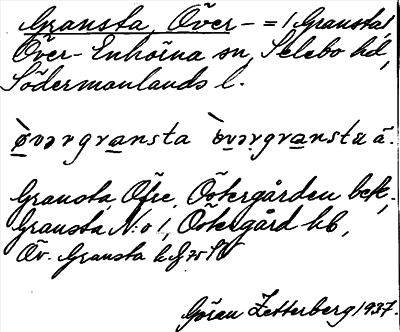 Gransta, Över- = 1 Gransta,
Över-Enhörna sn, Selebo hd,
Södermanlands l.
Gransta Öfre, Östergården bek,
Gransta N:o 1, Östergård hb,
Öv. Gransta
Göran Zetterberg 1937.